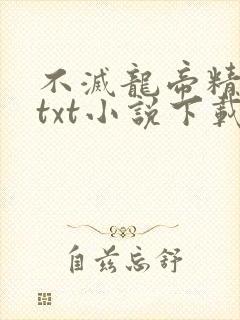 不滅龍帝精
txt小説下載
自茲忘舒